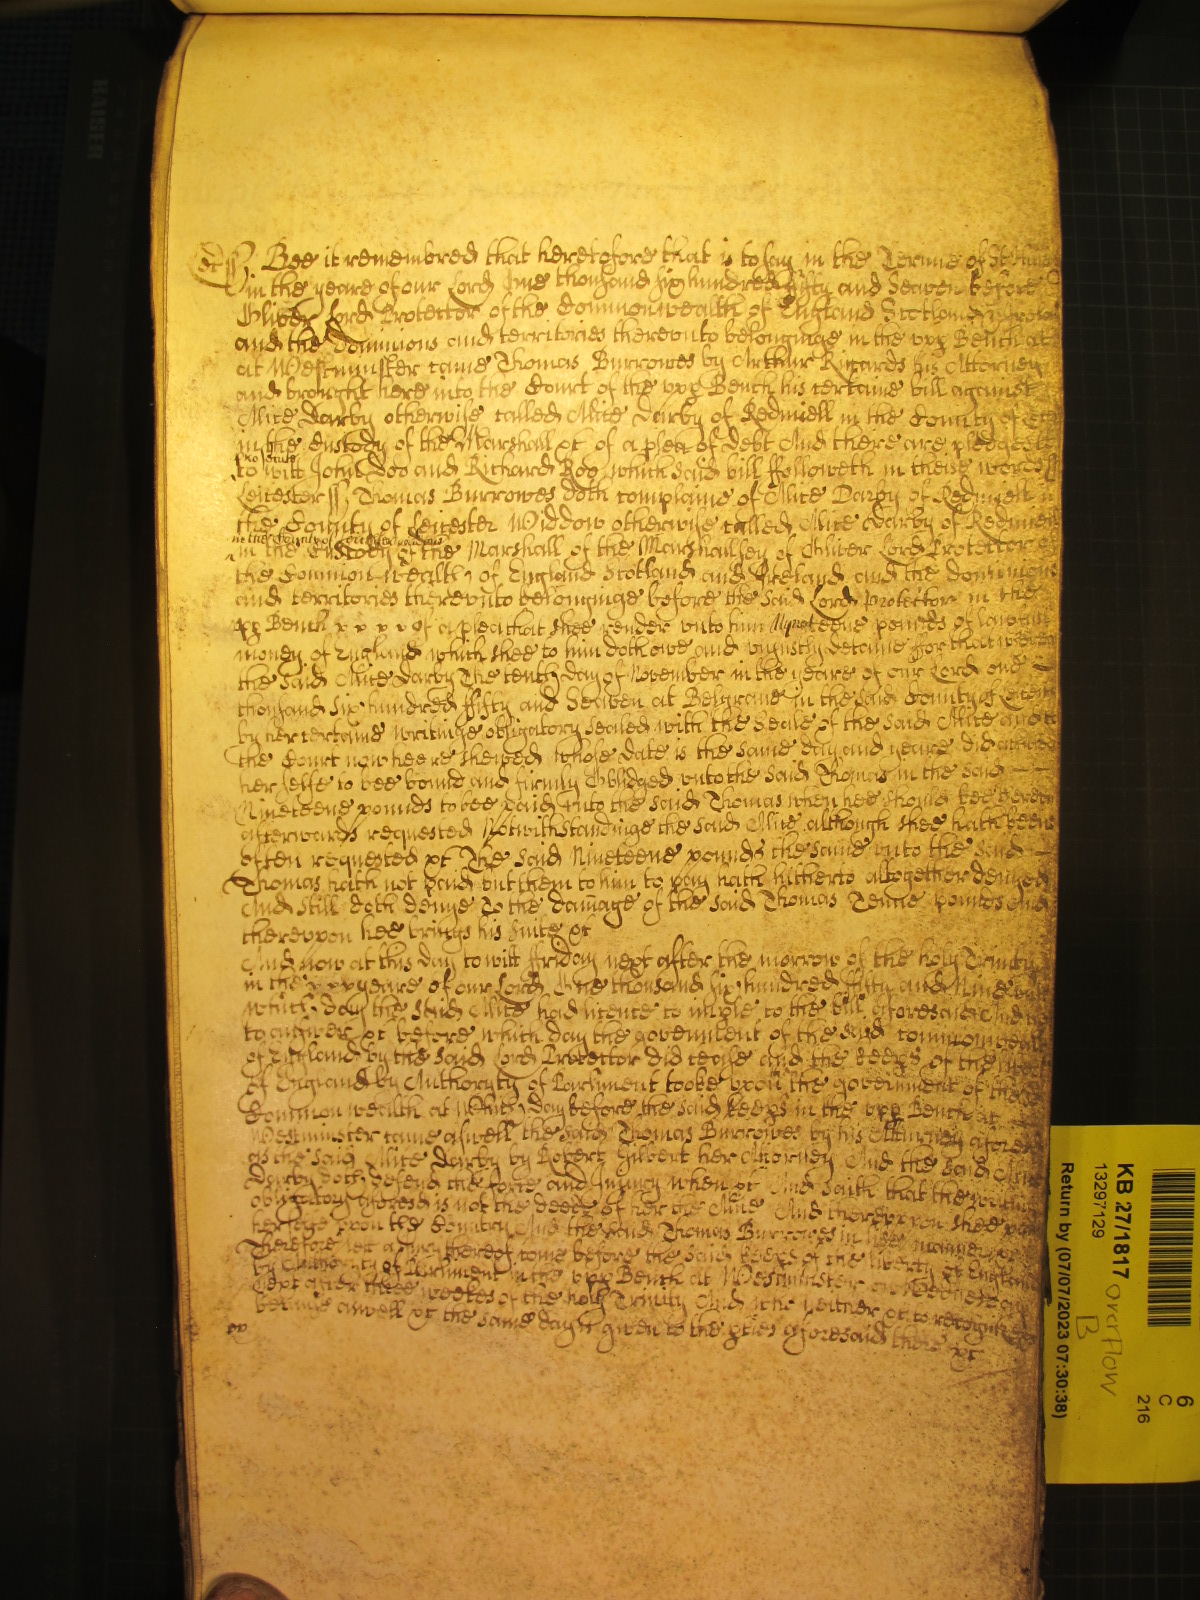 Bee it remembred that heretofore that is to say in the Terme of St
in the yeare of our Lord One thousand six hundred fifty and Seaven before
Oliver Lord Protector of the Commonwealth of England Scotland
and the Dominions and territories therevnto belonginge in the vpp Bench
at Westminster came Thomas Burrowes by Arthur Ricards his Attorney
and brought here into the Court of the vpp Bench his certaine bill against
Alice Darby otherwise called Alice Darby of Redmiell in the County of
in the Custody of the Marshall &c of a plea of debt And there are pledges
to witt John Doo and Richard Roo which said bill followeth in these words
Leicester ss Thomas Burrowes doth complaine of Alice Darby of Redmiell in
the County of Leicester Widdow otherwise called Alice Darby of Redmiell
in the County of Leicester
in the Custody of the Marshall of the Marshallsey of Oliver Lord Protector of
the Common wealth of England Scotland and Ireland and the dominions
and territories therevnto belonginge before the said Lord Protector in the
vpp Bench of a plea that shee render vnto him Nyneteene pounds of lawfull
money of England which shee to him doth owe and vniustly detaine for that
the said Alice Darby the tenth day of November in the yeare of our Lord one
thousand six hundred fifty and Seaven at Belgrave in the said County of
by her certaine writinge obligatory sealed with the Seale of the said Alice and to
the Court now heere shewed whose date is the same day and yeare did
her selfe to bee bound and firmly Oblidged vnto the said Thomas in the said
Nineteene pounds to bee paid vnto the said Thomas when hee should bee
afterwards requested Notwithstandinge the said Alice although shee hath been
often requested &c The said Nineteene pounds the same vnto the said
Thomas hath not paid but them to him to pay hath hitherto altogether denyed
And still doth denye To the damage of the said Thomas Tenne pounds And
therevpon hee brings his suite &c
And now at this day to witt ffriday next after the morrow of the holy Trinity
in the yeare of our Lord One thousand six hundred fifty and Nine
which day the said Alice had licence to imple to the bill aforesaid And
to answer &c before which day the government of the said commonwealth
of England by the said Lord Protector did cease and the Keeps of the
of England by Authority of Parliment tooke vpon the government of the
Common wealth at which day before the said keeps in the vpp Bench at
Westminster came aswell the said Thomas Burrowes by his Attorney
as the said Alice Darby by Robert Gilbert her Attorney And the said
Darby doth defend the force and Iniury when &c And saith that the
obligatory aforesd is not the deede of her the Alice And therevpon shee
her selfe vpon the Country And the said Thomas Burrowes in like manner
Therefore let a Jury thereof come before the said keeps of the liberty of England
by Authority of Parliment in the vpp Bench at Westminster on
next after three weekes of the holy Trinity And who neither &c to recognize
because aswell &c the same day is given to the pties aforesaid there &c
KB 27/1817 overflow
B
13297129
Return by (07/07/2023 07:30:38)
6
C
216
KAISER